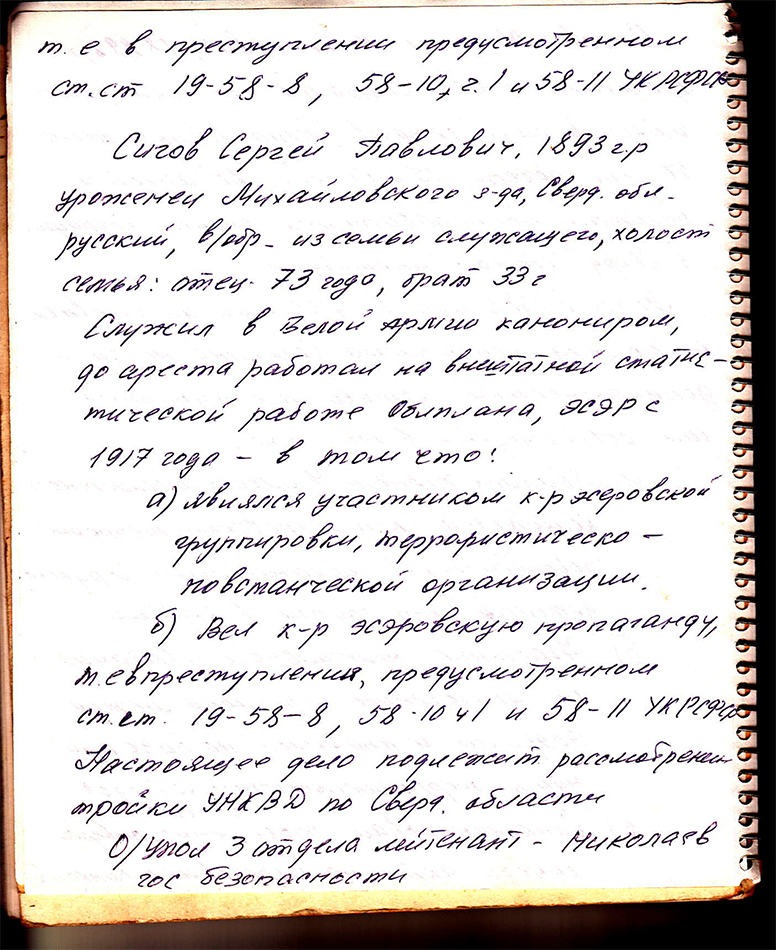 т. е в преступлении предусмотренном
ст. ст 19-58-8, 58-10, ч.1 и 58-11 УКРСФСР
Сигов Сергей Павлович, 1893 г.р
уроженец Михайловского з-да, Сверд. обл.
русский, в/обр - из семьи служащего, холост
семья: отец 73 года, брат 33 г
Служил в Белой армии канониром,
до ареста работал на внештатной статис-
тической работе Облплана, эсэр с
1917 года - в том что:
а) являлся участником к-р эсеровской
группировки, террористическо -
повстанческой организации.
б) Вел к-р эсэровскую пропаганду,
т. е в преступлении, предусмотренном
ст. ст. 19-58-8, 58-10 ч1 и 58-11 УКРСФСР
Настоящее дело подлежит рассмотрению
тройки УНКВД по Сверд. области
О/Упол 3 отдела лейтенант - Николаев
гос безопасности